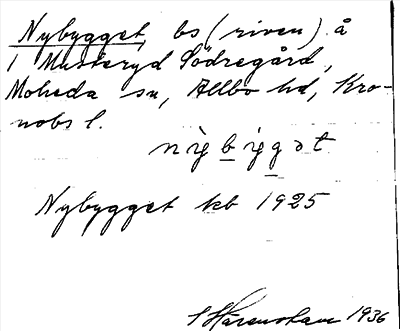 Nybygget, bs (riven) å
1 Musteryd Södregård,
Moheda sn, Allbo hd, Kro-
nobs l.
Nybygget kb 1925
1936